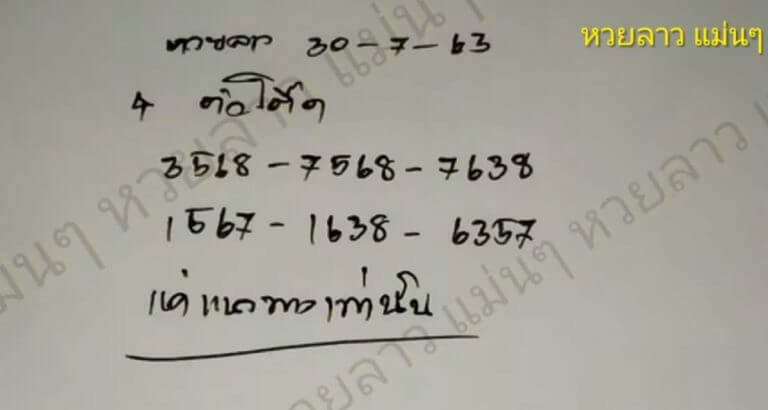 หวยลาว แม่นๆ
หวยลาว 30-7-63
4 ตัวโต๊ด
3568 - 7568 - 7638
1567 - 1638 - 6357
แค่แนวทางเท่านั้น
หวยลาว แม่นๆ หวยลาว แม่นๆ
หวยลาว แม่นๆ หวยลาว แม่นๆ